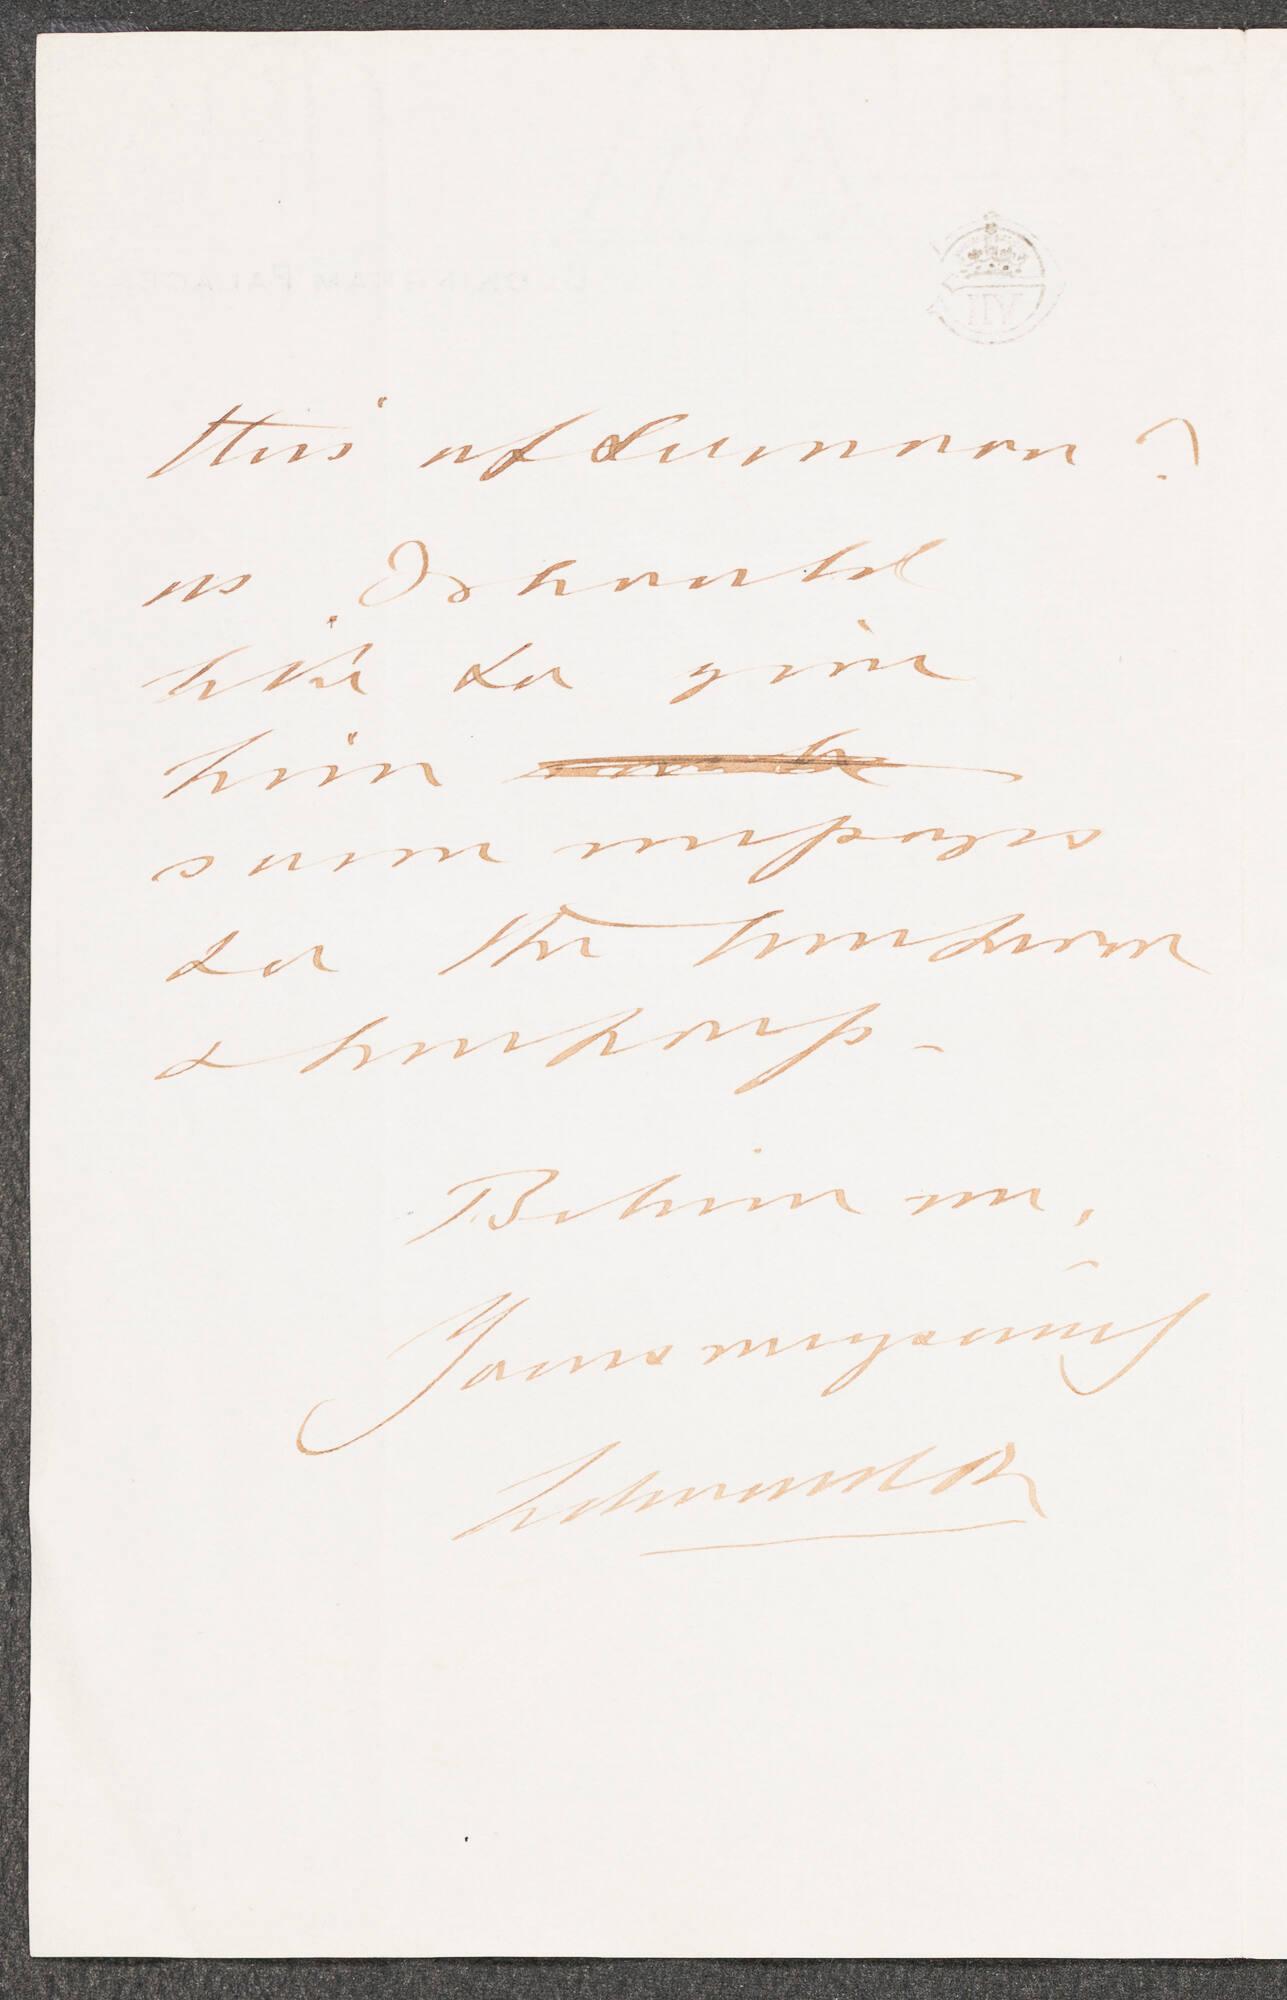 this afternoon?
as I should
like to give
him
some messages
to the Emperor
& Empress –
Believe me,
Yours very sincerely
Edward R